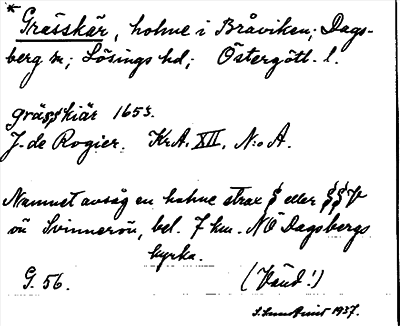 * Grässkär, holme i Bråviken; Dags-
berg sn; Lösings hd; Östergötl. l.
grässkiär 1653.
J. de Rogier. KrA, XII, N:o A.
Namnet avsåg en holme strax S eller
ön Svinnerön, bel. 7 km. NÖ Dagsbergs
kyrka.
G. 56. (Vänd!)
1937.